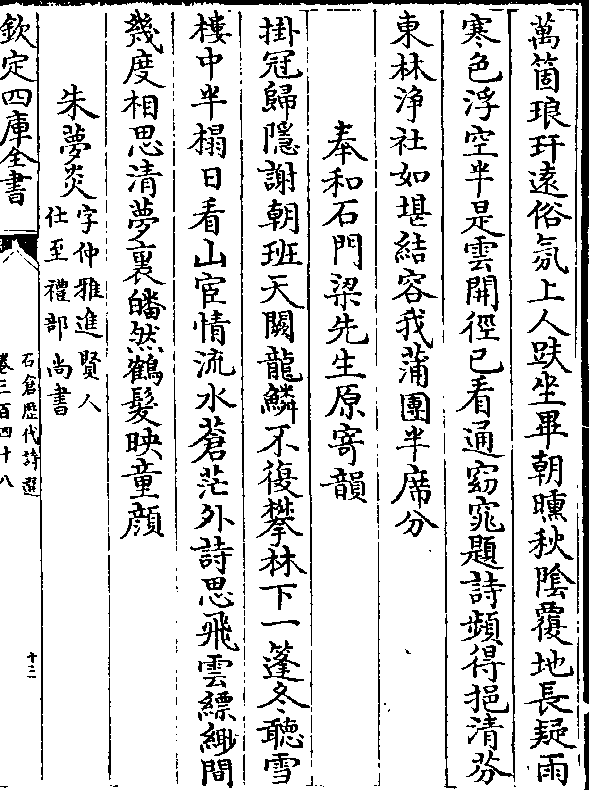 萬箇琅玕遠俗氛上人趺坐畢朝曛秋陰覆地長疑雨
寒色浮空半是雲開徑已看通窈窕題詩頻得挹清芬
東林浄社如堪結容我蒲團半席分
奉和石門梁先生原寄韻
掛冠歸隱謝朝班天闕龍鱗不復攀林下一篷冬聽雪
樓中半榻日看山宦情流水蒼茫外詩思飛雲縹緲間
幾度相思清夢裏皤然鶴髮映童顔
朱夢炎字仲雅進賢人
仕至禮部尚書
欽定四庫全書
石倉歴代詩選
卷三百四十八
十三